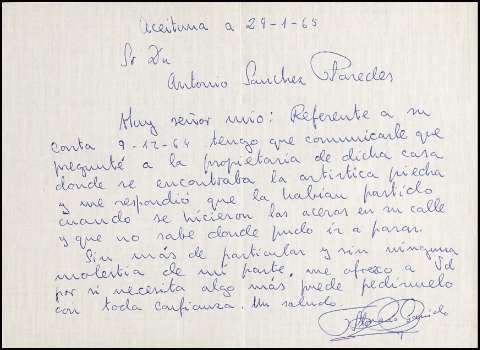 Aceituna a 29-1-65
Sr Dn
Antonio Sanchez Paredes
Muy señor mio: Referente a su
conta 9-12-64 tengo que comunicarle que
pregunté a la propietaria de dicha casa
donde se encontraba la artistica piedra
y me respondió que la habian partido
cuando se hicieron las aceras en su calle
y que no sabe donde pudo ir a parar.
Sin más de particular y sin ninguna
molestia de mi parte, me ofrezco a Vd
por si necesita algo más puede pedirmelo
con toda confianza. Un saludo.